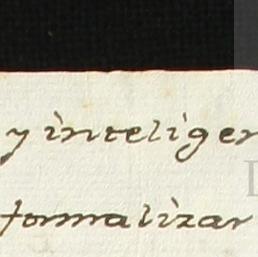 y inteligen
formalizar